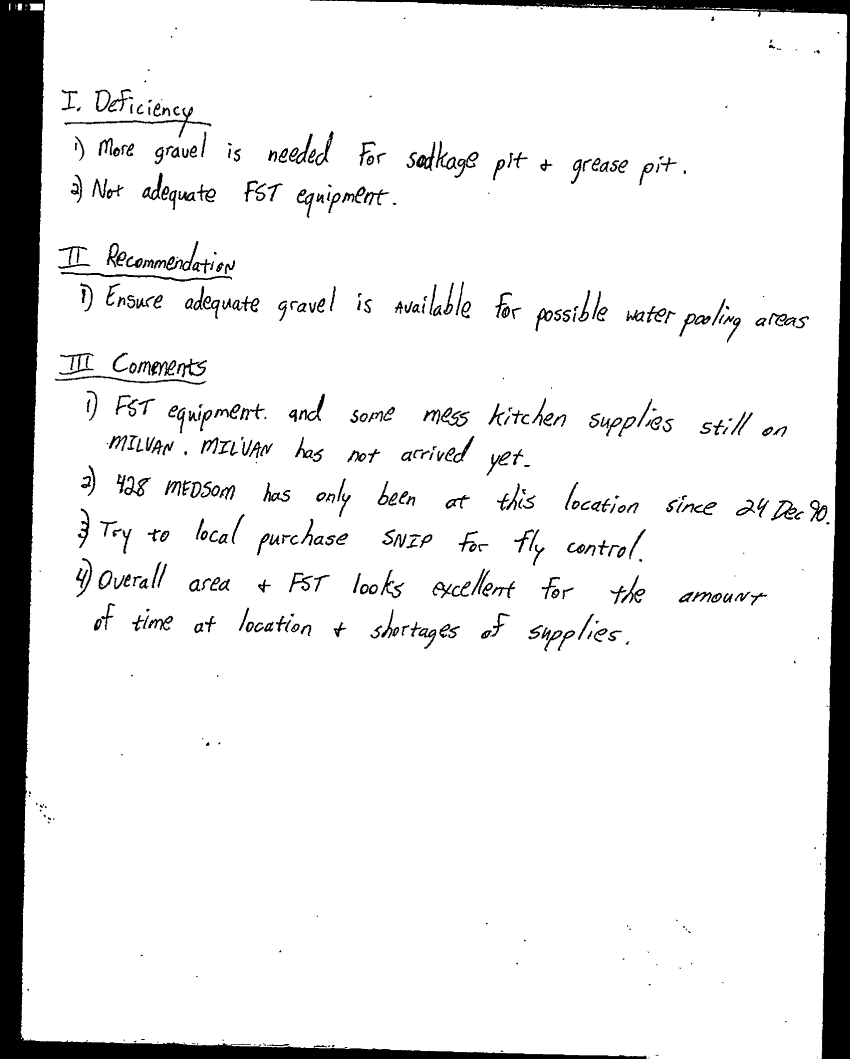 I. Deficiency
1) More gravel is needed For soakage pit + grease pit.
2) Not adequate FST equipment.
II Recommendation
1) Ensure adequate gravel is Available for possible water pooling areas
III Comments
1) FST equipment. and some mess kitchen supplies still on
MILVAN. MILVAN has not arrived yet.
2) 428 MEDSOM has only been at this location since 24 Dec 90.
3) Try to local purchase SNIP for fly control.
4) Overall area + FST looks excellent for the amount
of time at location + shortages of supplies.